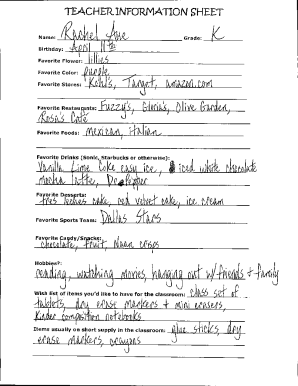 TEACHER INFORMATION SHEET
Name: Rachel Grade: K
Birthday: April 11th
Favorite Flower: lillies
Favorite Color: purple
Favorite Stores: Kohl's, Target, amazon.com
Favorite Restaurants: Fuzzy's, Gloria's, Olive Garden,
Rosa's Café
Favorite Foods: mexican, italian
Favorite Drinks (Sonic, Starbucks or otherwise):
Vanilla Lime Coke easy ice, iced white chocolate
mocha latte, Dr. Pepper
Favorite Desserts:
tres leches cake, red velvet cake, ice cream
Favorite Sports Team: Dallas Stars
Favorite Candy/Snacks:
chocolate, fruit,
Hobbies?:
reading, watching movies, hanging out w/ friends & family
Wish list of items you'd like to have for the classroom: class set of
tablets, dry erase markers & mini erasers,
Kinder composition notebooks
Items usually on short supply in the classroom: glue sticks dry
erase markers, crayons